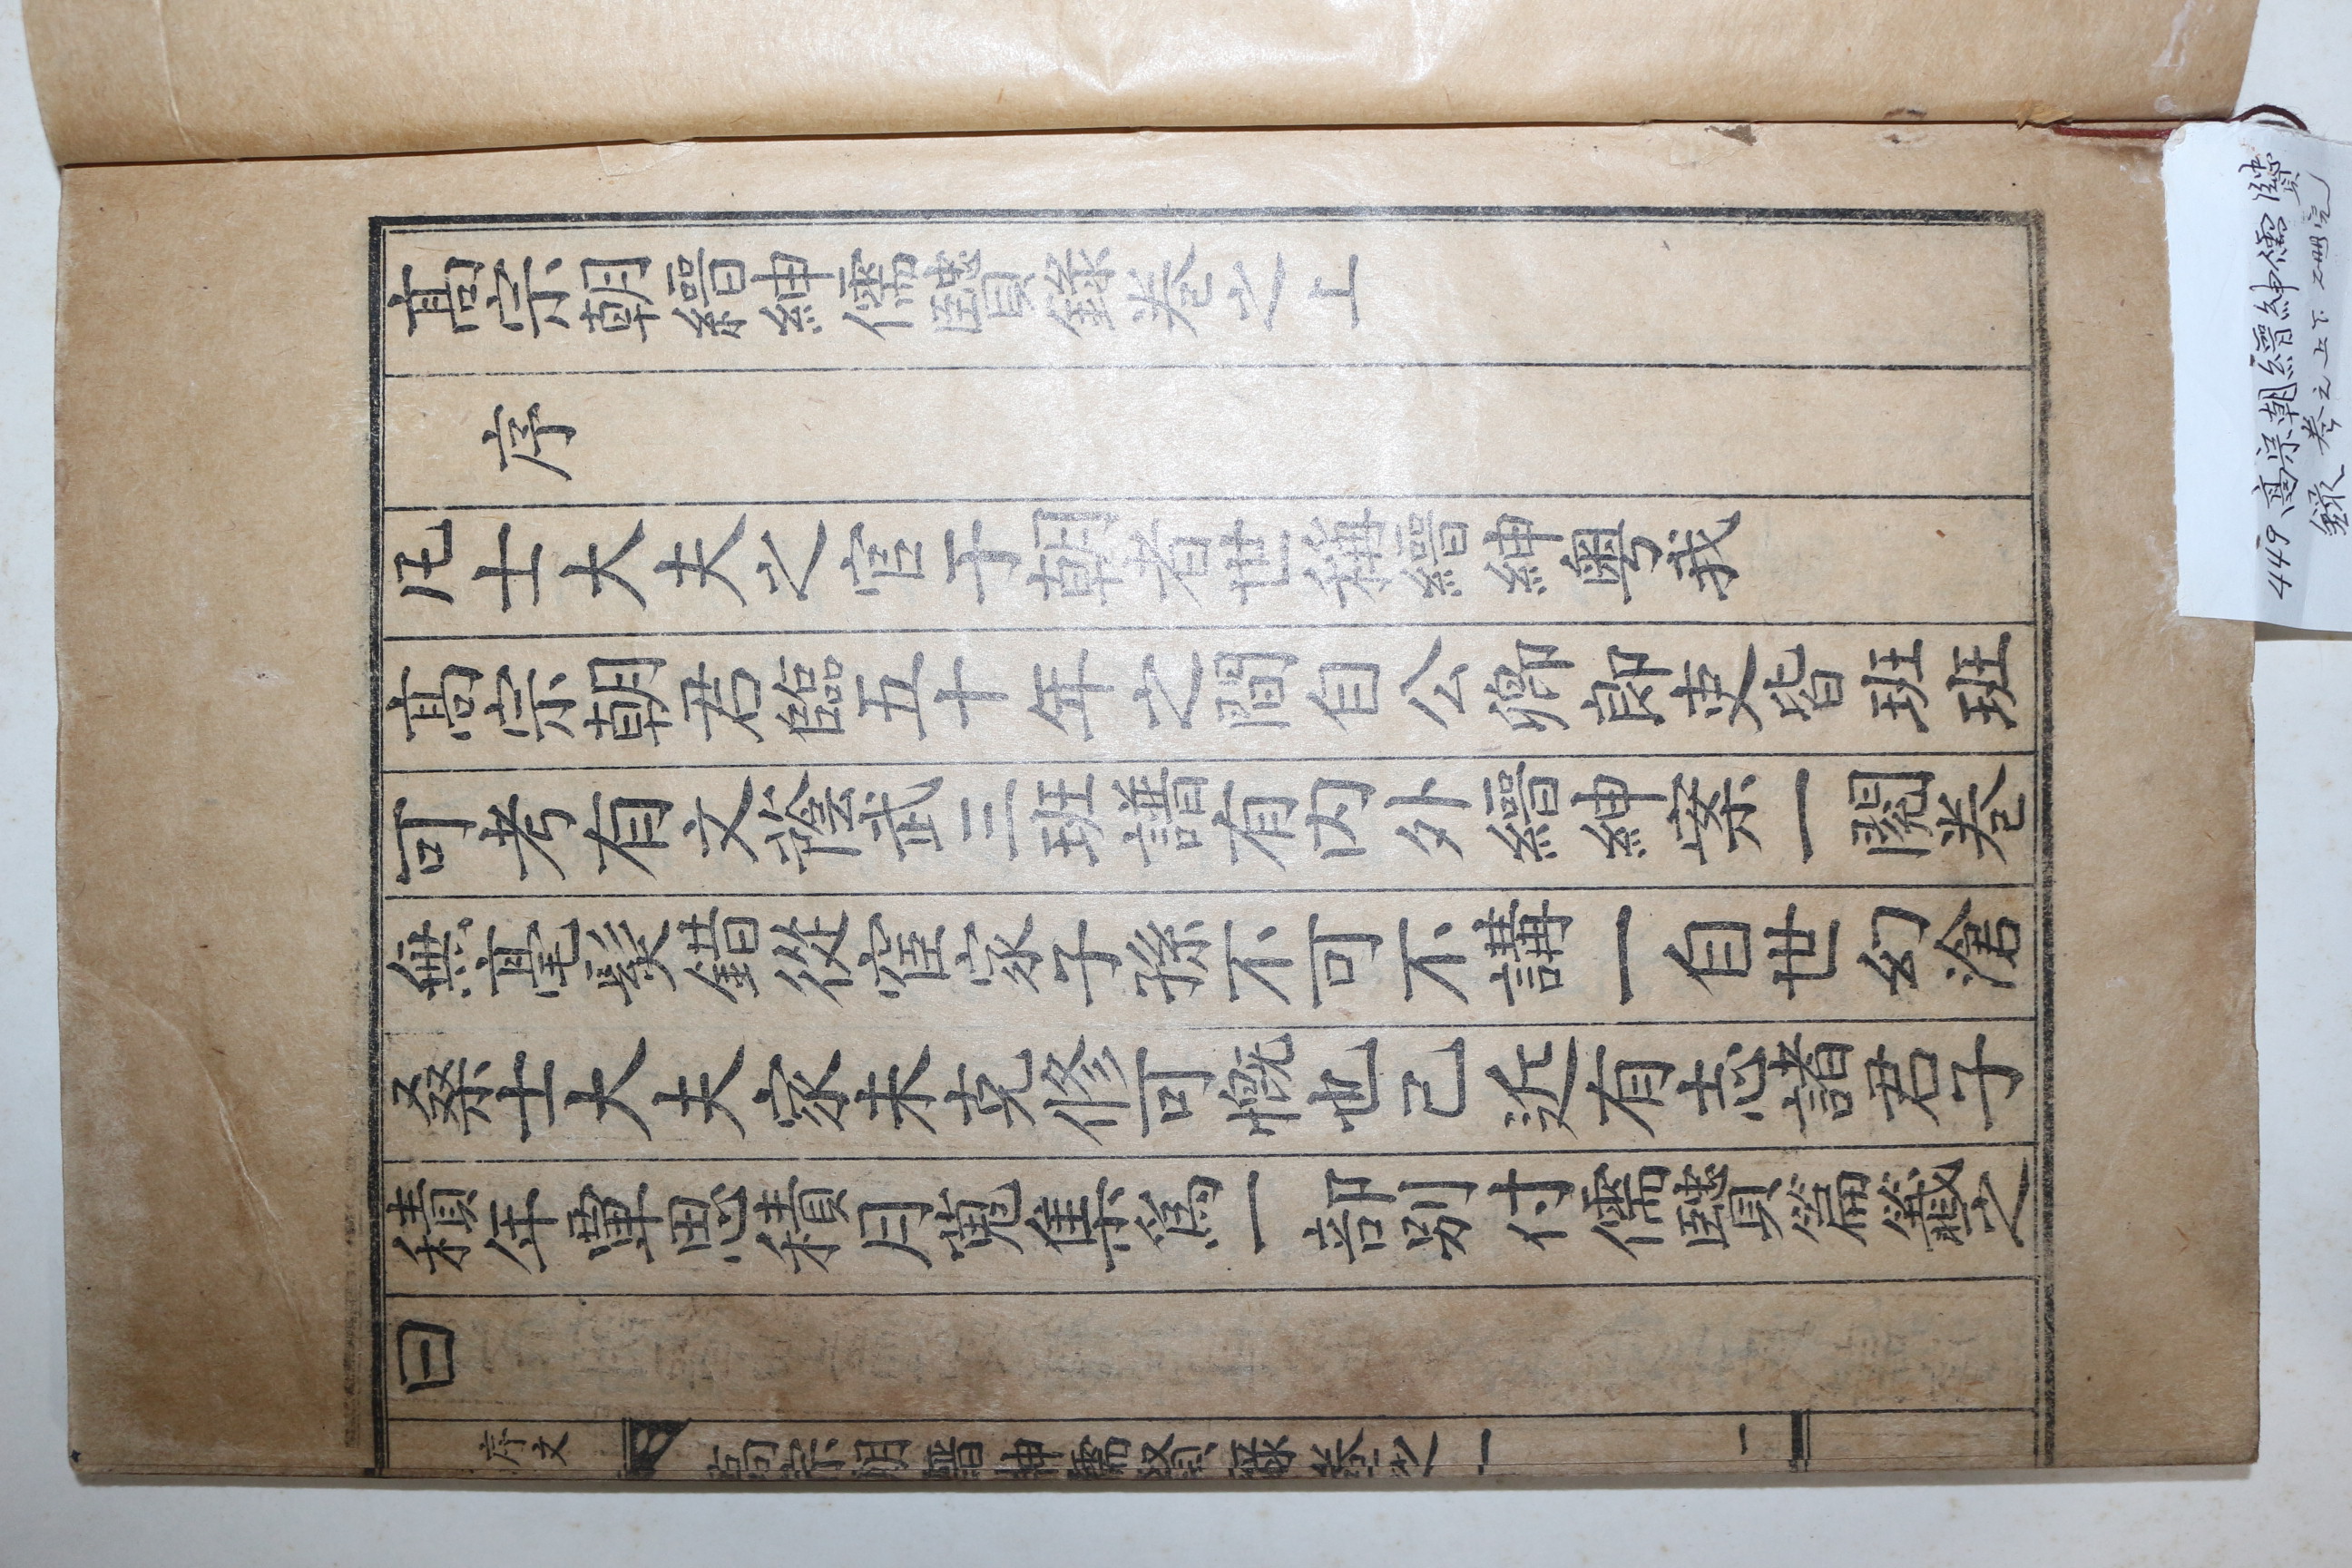 高宗朝縉紳儒贒錄卷之上
序
凡士大夫之官于朝者世稱縉紳粤我
高宗朝君臨五十年之間自公卿郎吏皆班班
可考有文蔭武三班譜有内外縉紳案一閱卷
無毫髮錯從宦家子孫不可不講一自世幻滄
桑士大夫家未克修可慨也已近有志諸君子
積年覃思積月蒐集爲一部别付儒贒篇籤之
曰
序文
高宗朝縉紳儒賢錄卷之一
一
449 高宗朝縉紳儒贒
錄 卷之上下 2冊完